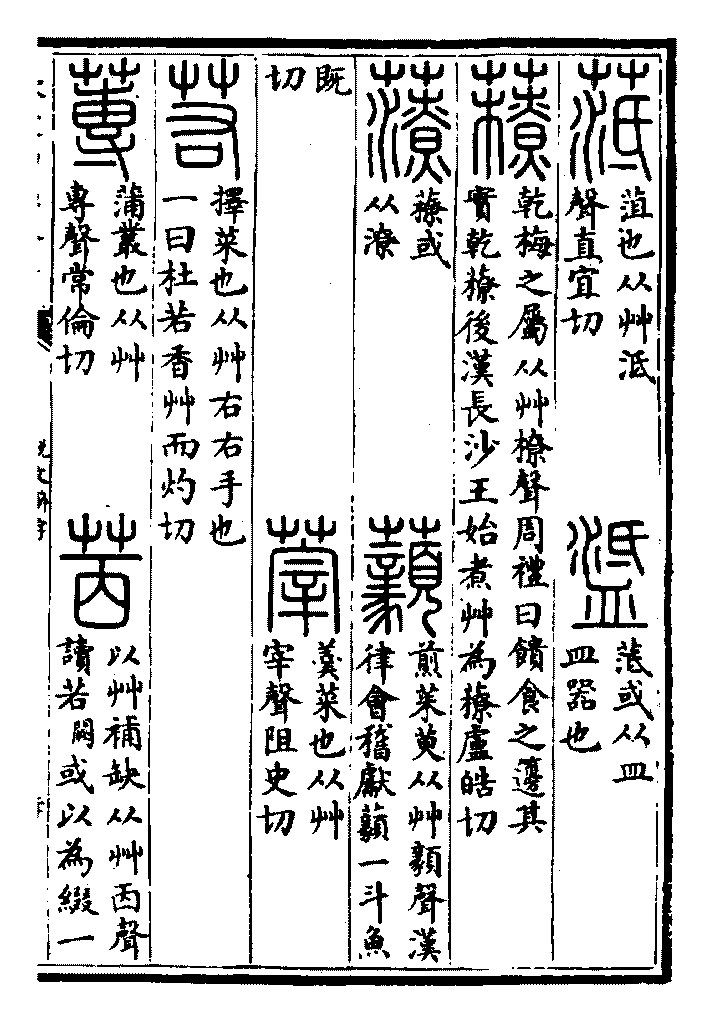 菹也从艸泜
聲直宜切
或从皿
皿器也
䕩
乾梅之屬从艸橑聲周禮曰饋食之籩其
實乾䕩後漢長沙王始煮艸為䕩盧皓切
䕩或
从潦
煎茱萸从艸顡聲漢
律會稽獻一斗魚
既
切
䔂
羹菜也从艸
宰聲阻史切
若
擇菜也从艸右右手也
一曰杜若香艸而灼切
蓴
蒲叢也从艸
專聲常倫切
以艸補缺从艸㐁聲
讀若或以為綴一